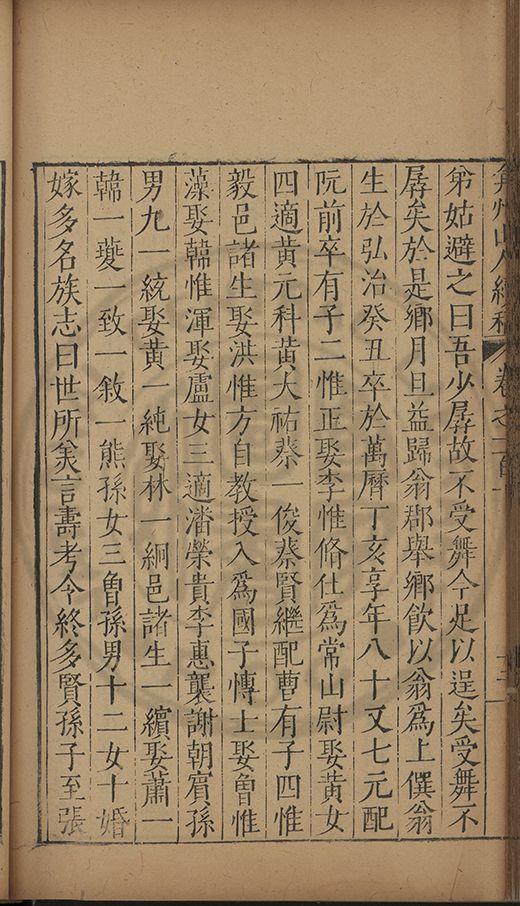 弇州山人續稿 卷之一百
弟姑避之曰吾少孱故不受舞今足以逞矣受舞不
孱矣於是鄉月旦益歸翁郡舉鄉飲以翁爲上僎翁
生於弘治癸丑卒於萬曆丁亥享年八十又七元配
阮前卒有子二惟正娶李惟脩仕爲常山尉娶黃女
四適黃元科黃大祐蔡一俊蔡賢繼配曹有子四惟
毅邑諸生娶洪惟方自教授入爲國子博士娶魯惟
藻娶韓惟渾娶盧女三適潘榮貴李惠襲謝朝賓孫
男九一統娶黃一純娶林一絅邑諸生一纘娶蕭一
韓一夔一致一敘一熊孫女三曾孫男十二女十婚
嫁多名族志曰世所矣言壽考令終多賢孫子至張